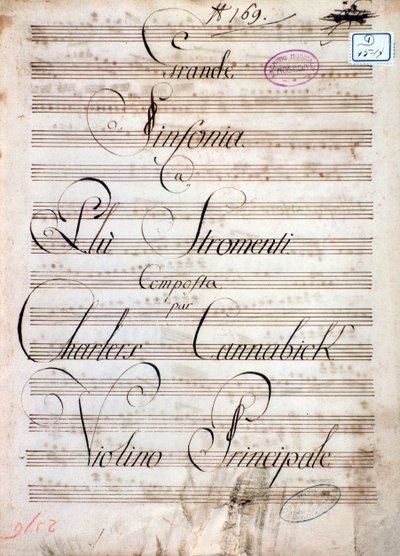 № 169.
Grande
Sinfonia.
a
Più Stromenti.
Composta
par
Charlers Cannabick
Violino Principale